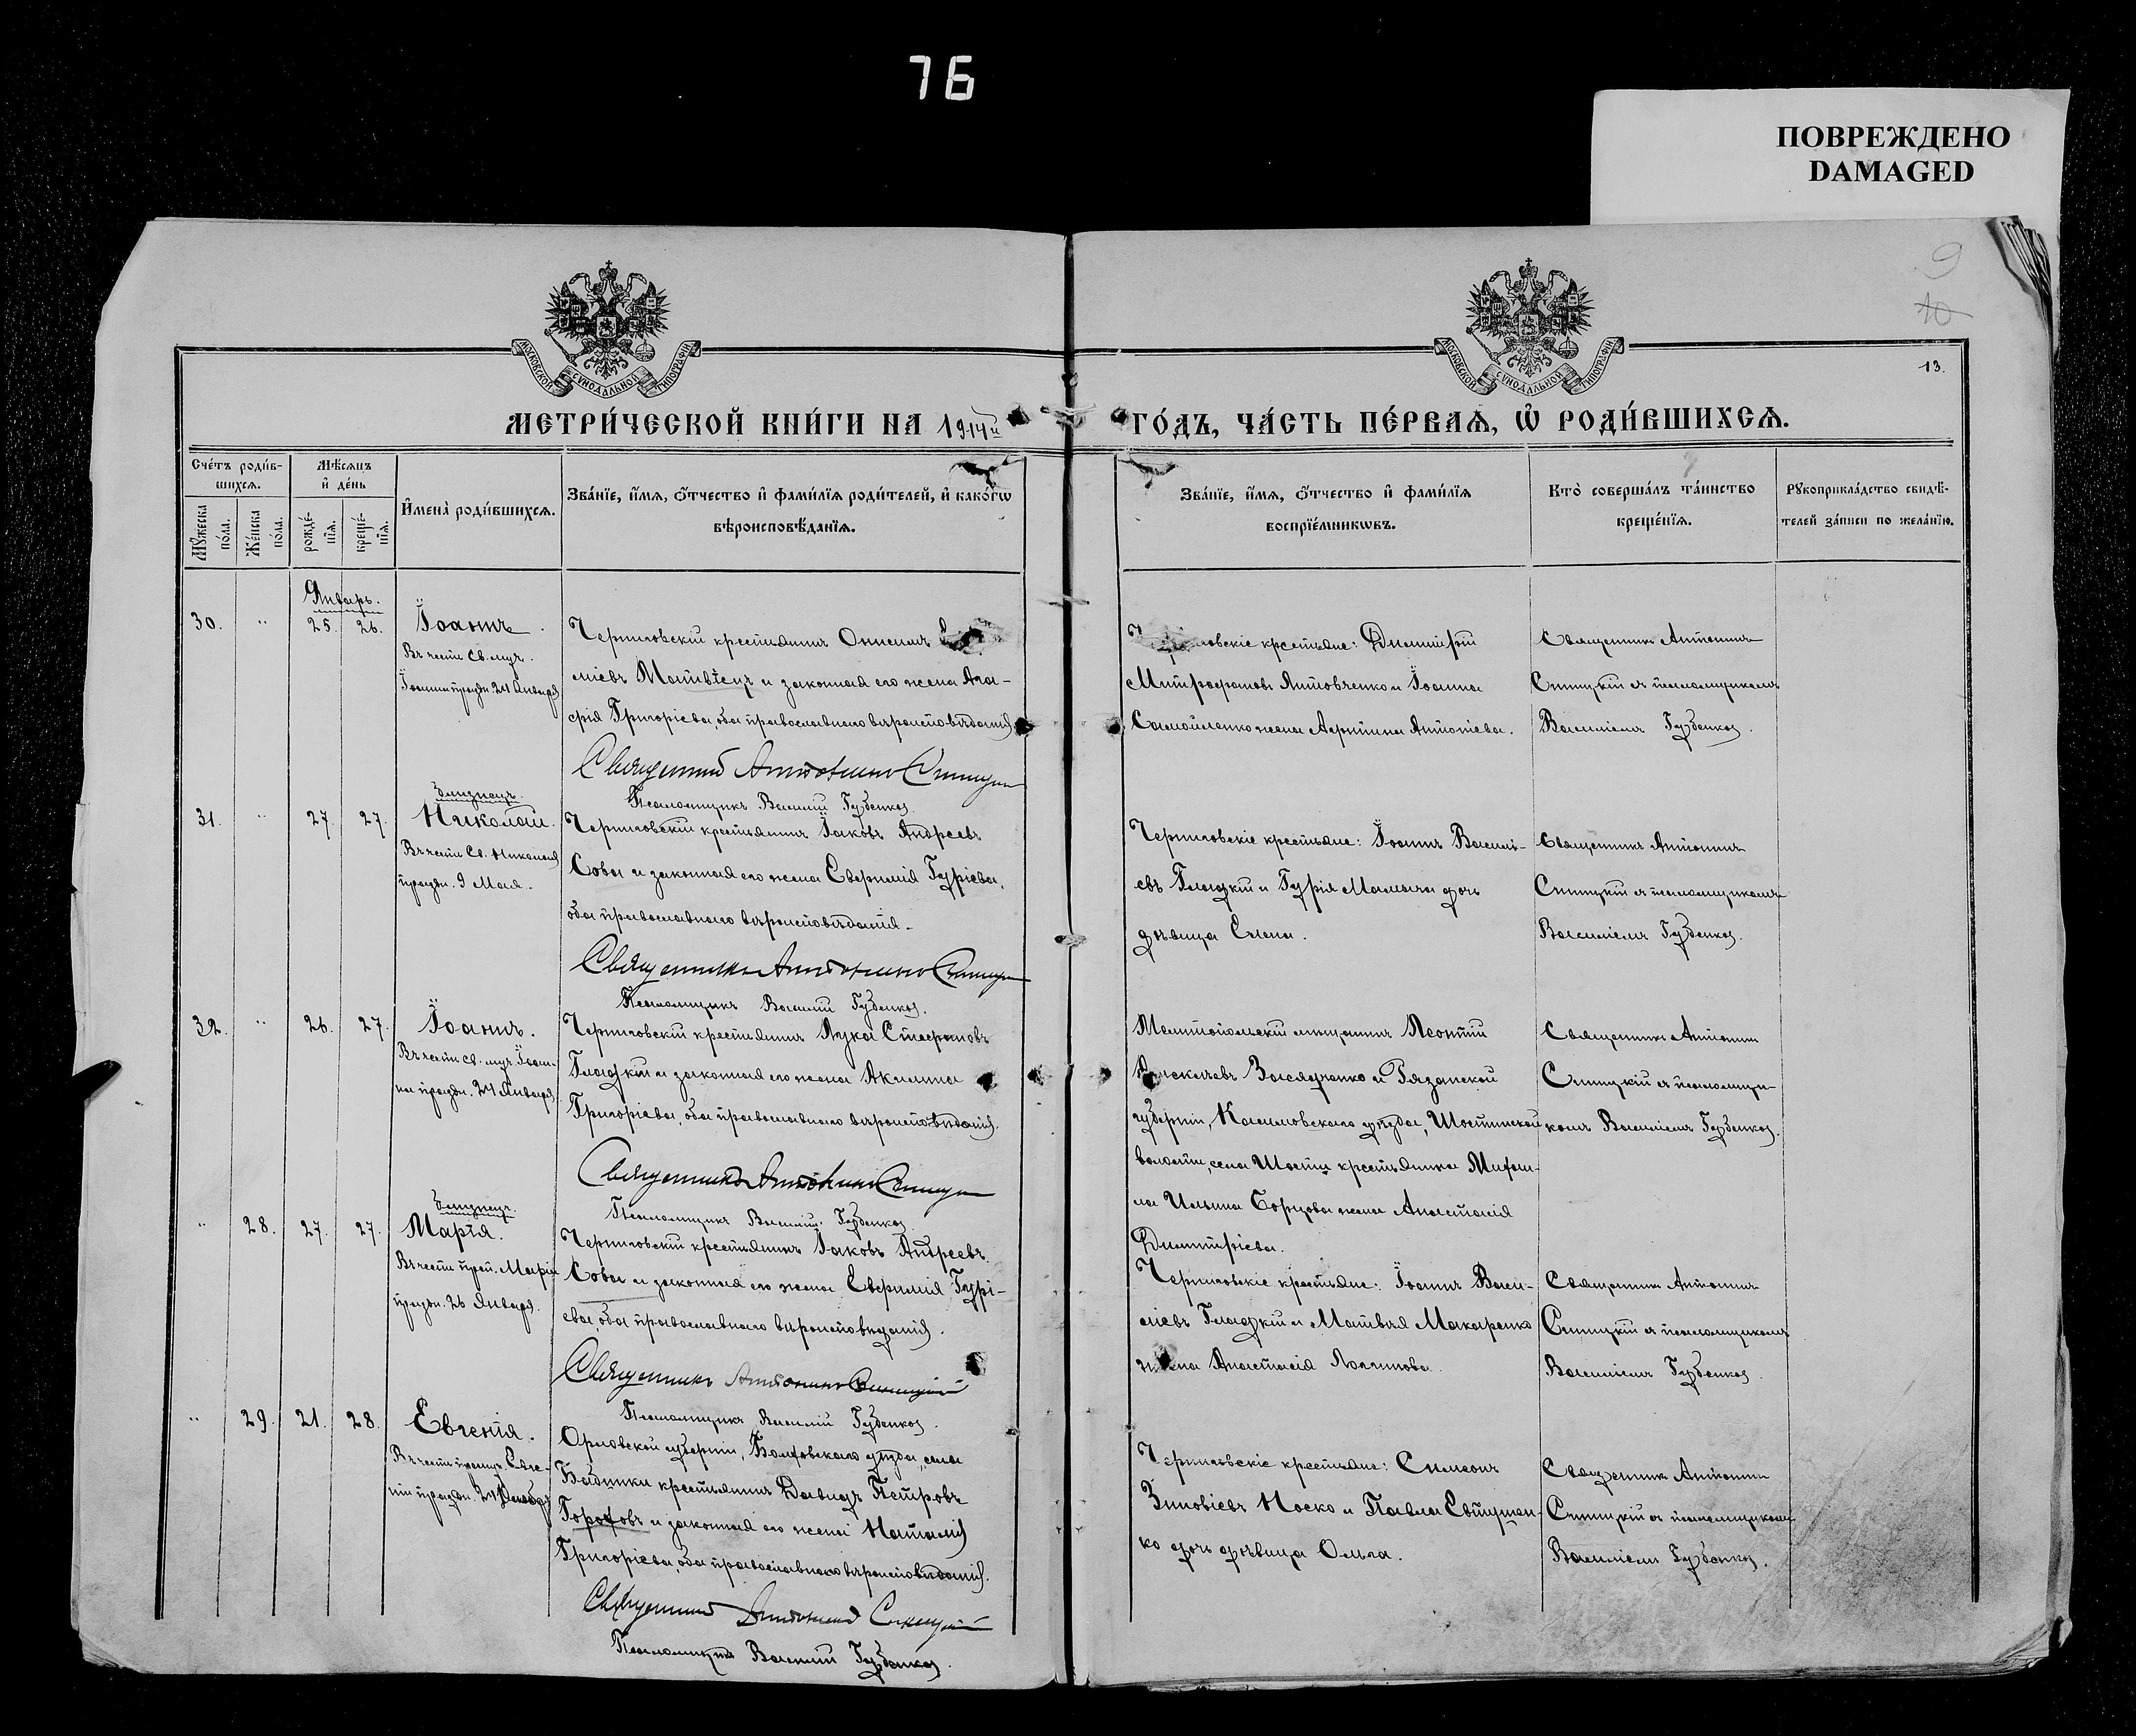 76
ПОВРЕЖДЕНО
DAMAGED
9
10
13.
МОСКОВСКОЙ СѴНОДАЛЬНОЙ ТИПОГРАФІИ
МОСКОВСКОЙ СѴНОДАЛЬНОЙ ТИПОГРАФІИ
МЕТРИ́ЧЕСКОЙ КНИ́ГИ НА 1914й
ГО́ДЪ, ЧА́СТЬ ПЕ́РВАѦ, Ѡ҆ РОДИ́ВШИХСѦ.
Сче́тъ роди́в-
шихсѧ.
Мѣ́сѧцъ
и҆ де́нь
Мꙋ́жеска
по́ла.
Же́нска
по́ла.
рожде́-
нїѧ.
креще́-
нїѧ.
И҆мена̀ роди́вшихсѧ.
Зва́нїе, и҆́мѧ, ѻ҆́тчество и҆ фами́лїѧ роди́телей, и҆ како́гѡ
вѣроисповѣ́данїѧ.
Зва́нїе, и҆́мѧ, ѻ҆́тчество и҆ фами́лїѧ
воспрїе́мникѡвъ.
Кто̀ соверша́лъ та́инство
креще́нїѧ.
Рꙋкоприкла́дство свидѣ́-
телей за́писи по жела́нїю.
Январь.
30. " 25. 26. Іоаннъ.
Въ честь св. муч.
Іоанна праздн. 24 Января
Черниговскій крестьянинъ Онисимъ
міевъ Матвѣецъ и законная его жена Ага-
фія Григорієва, оба православнаго вѣроисповѣданія
Священникъ Антонинъ Синицкій
Псаломщикъ Василій Губенко.
новскіе крестьяне: Димитрій
Митрофановъ Янтовченко и Іоанна
Самойленко жена Антоніева.
Священникъ Антонинъ
Синицкій съ псаломщикомъ
Василіемъ Губенко.
Близнецъ.
31. " 27. 27. Николай.
Въ честь Св. Николая
праздн. 9 Мая.
Черниговскій крестьянинъ Іаковъ Андреевъ
Сова и законная его жена Евфимія Гуріева,
оба православнаго вѣроисповѣданія.
Священникъ Антонинъ Синицкій
Псаломщикъ Василій Губенко.
Черниговскіе крестьяне: Іоаннъ Василі-
евъ Гладкій и Гурія Мамыча дочь
дѣвица Елена.
Священникъ Антонинъ
Синицкій съ псаломщикомъ
Василіемъ Губенко.
32. " 26. 27. Іоаннъ.
Въ честь св. муч. Іоан-
на праздн. 24 Января
Черниговскій крестьянинъ Лука Стефановъ
Гладкій и законная его жена Акилина
Григоріева, оба православнаго вѣроисповѣданія.
Священникъ Антонинъ Синицкій
Псаломщикъ Василій Губенко
Мелитопольскій мѣщанинъ Леонтій
Засядченко и Рязанской
губерніи, Касимовскаго уѣзда, Шостинской
волости, села Шостья крестьянина Михаи-
ла Ильина Борцова жена Анастасія
Димитріева.
Священникъ Антонинъ
Синицкій съ псаломщи-
комъ Василіемъ Губенко.
Близнецъ.
" 28. 27. 27. Марія.
Въ честь преп. Маріи
праздн. 26 Января.
Черниговскій крестьянинъ Іаковъ Андреевъ
Сова и законная его жена Евфимія Гурі-
ева, оба православнаго вѣроисповѣданія.
Священникъ Антонинъ Синицкій
Псаломщикъ Василій Губенко.
Черниговскіе крестьяне: Іоаннъ Васи-
ліевъ Гладкій и Матвѣя Макаренко
жена Анастасія Логгинова.
Священникъ Антонинъ
Синицкій съ псаломщикомъ
Василіемъ Губенко.
" 29. 21. 28. Евгенія.
Въ честь препмуч. Евге-
ніи праздн. 24 Декабря
Орловской губерніи, Болховскаго уѣзда, села
крестьянинъ Давидъ Петровъ
Гороховъ и законная его жена Наталія
Григоріева, оба православнаго вѣроисповѣданія.
Священникъ Антонинъ Синицкій
Псаломщикъ Василій Губенко.
Черниговскіе крестьяне: Симеонъ
Зиновіевъ Носко и Павла Евтушен-
ко дочь дѣвица Ольга.
Священникъ Антонинъ
Синицкій съ псаломщикомъ
Василіемъ Губенко.